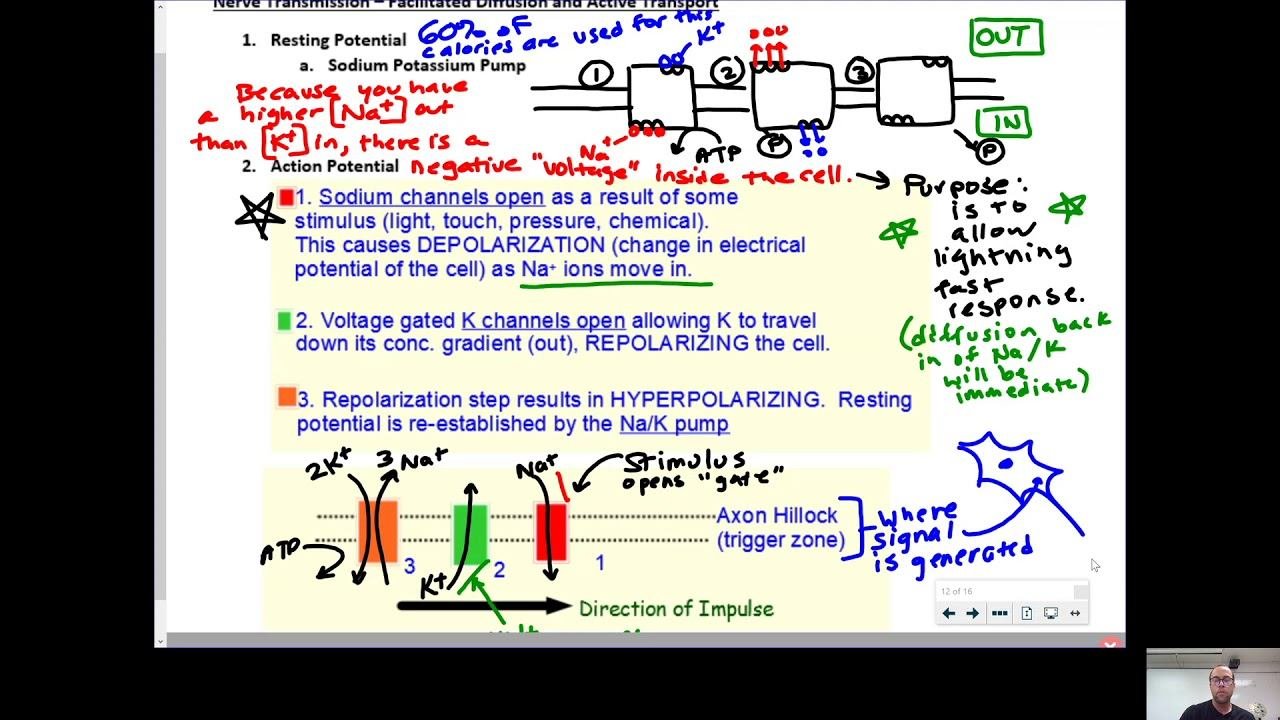 Nerve Transmission – Facilitated Diffusion and Active Transport
1. Resting Potential
60% of
calories are used for this
a. Sodium Potassium Pump
K+
OUT
1
2
3
Because you have
a higher [Na+] out
than [K+] in, there is a
negative "voltage" inside the cell.
Na+
ATP
P
P
IN
2. Action Potential
Purpose:
is to
allow
lightning
fast
response.
(diffusion back
in of Na/K
will be
immediate)
1. Sodium channels open as a result of some
stimulus (light, touch, pressure, chemical).
This causes DEPOLARIZATION (change in electrical
potential of the cell) as Na+ ions move in.
2. Voltage gated K channels open allowing K to travel
down its conc. gradient (out), REPOLARIZING the cell.
3. Repolarization step results in HYPERPOLARIZING. Resting
potential is re-established by the Na/K pump
2K+
3 Na+
Na+
Stimulus
opens "gate"
Axon Hillock
(trigger zone)
where
signal
is generated
ATP
3
K+
2
1
Direction of Impulse
12 of 16